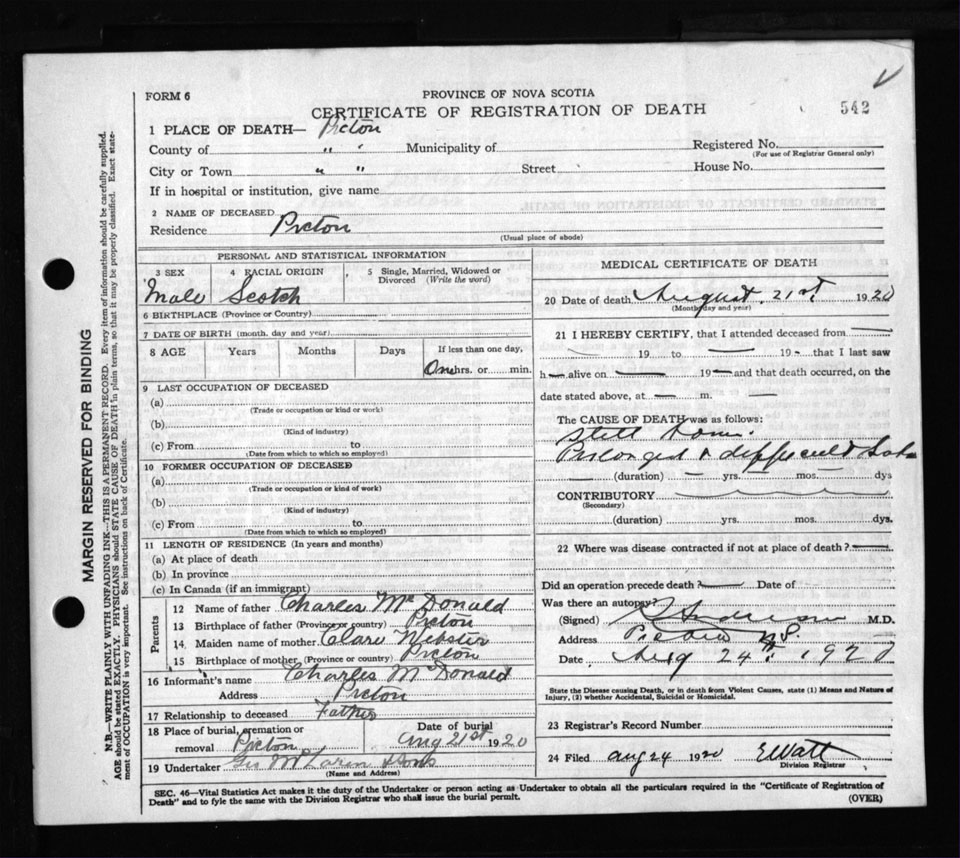 FORM 6
PROVINCE OF NOVA SCOTIA
CERTIFICATE OF REGISTRATION OF DEATH
542
1 PLACE OF DEATH— Pictou
County of " " Municipality of
Registered No.
(For use of Registrar General only)
City or Town " " Street House No.
If in hospital or institution, give name
2 NAME OF DECEASED
Residence Pictou
(Usual place of abode)
PERSONAL AND STATISTICAL INFORMATION
3 SEX 4 RACIAL ORIGIN 5 Single, Married, Widowed or
Divorced (Write the word)
Male Scotch
6 BIRTHPLACE (Province or Country)
7 DATE OF BIRTH (month, day and year)
8 AGE Years Months Days If less than one day,
One hrs. or min.
9 LAST OCCUPATION OF DECEASED
(a)
(Trade or occupation or kind or work)
(b)
(Kind of industry)
(c) From to
(Date from which to which so employed)
10 FORMER OCCUPATION OF DECEASED
(a)
(Trade or occupation or kind of work)
(b)
(Kind of industry)
(c) From to
(Date from which to which so employed)
11 LENGTH OF RESIDENCE (In years and months)
(a) At place of death
(b) In province
(c) In Canada (if an immigrant)
Parents
12 Name of father Charles McDonald
13 Birthplace of father (Province or country) Pictou
14 Maiden name of mother Clare Webster
15 Birthplace of mother (Province or country) Pictou
16 Informant's name Charles McDonald
Address Pictou
17 Relationship to deceased Father
18 Place of burial, cremation or
removal Pictou
Date of burial
Aug 21st 1920
19 Undertaker Sons
(Name and Address)
MEDICAL CERTIFICATE OF DEATH
20 Date of death August 21st 1920
(Month, day and year)
21 I HEREBY CERTIFY, that I attended deceased from
19 to 19 that I last saw
h alive on 19 and that death occurred, on the
date stated above, at m.
The CAUSE OF DEATH was as follows:
Still born.
Prolonged & difficult
(duration) yrs. mos. dys
CONTRIBUTORY
(Secondary)
(duration) yrs. mos. dys.
22 Where was disease contracted if not at place of death?
Did an operation precede death? Date of
Was there an autopsy?
(Signed) M.D.
Address Pictou N.S.
Date Aug 24th 1920
State the Disease causing Death, or in death from Violent Causes, state (1) Means and Nature of
Injury, (2) whether Accidental, Suicidal or Homicidal.
23 Registrar's Record Number
24 Filed Aug 24 1920 E Watt
Division Registrar
SEC. 46—Vital Statistics Act makes it the duty of the Undertaker or person acting as Undertaker to obtain all the particulars required in the "Certificate of Registration of
Death" and to fyle the same with the Division Registrar who shall issue the burial permit.
(OVER)
MARGIN RESERVED FOR BINDING
N.B.—WRITE PLAINLY WITH UNFADING INK—THIS IS A PERMANENT RECORD. Every item of information should be carefully supplied.
AGE should be stated EXACTLY. PHYSICIANS should STATE CAUSE OF DEATH in plain terms, so that it may be properly classified. Exact state-
ment of OCCUPATION is very important. See instructions on back of Certificate.